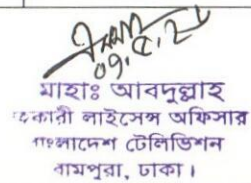 ০৭.৫.২৮
মাহাঃ আবদুল্লাহ
কারী লাইসেন্স অফিসার
বাংলাদেশ টেলিভিশন
রামপুরা, ঢাকা।